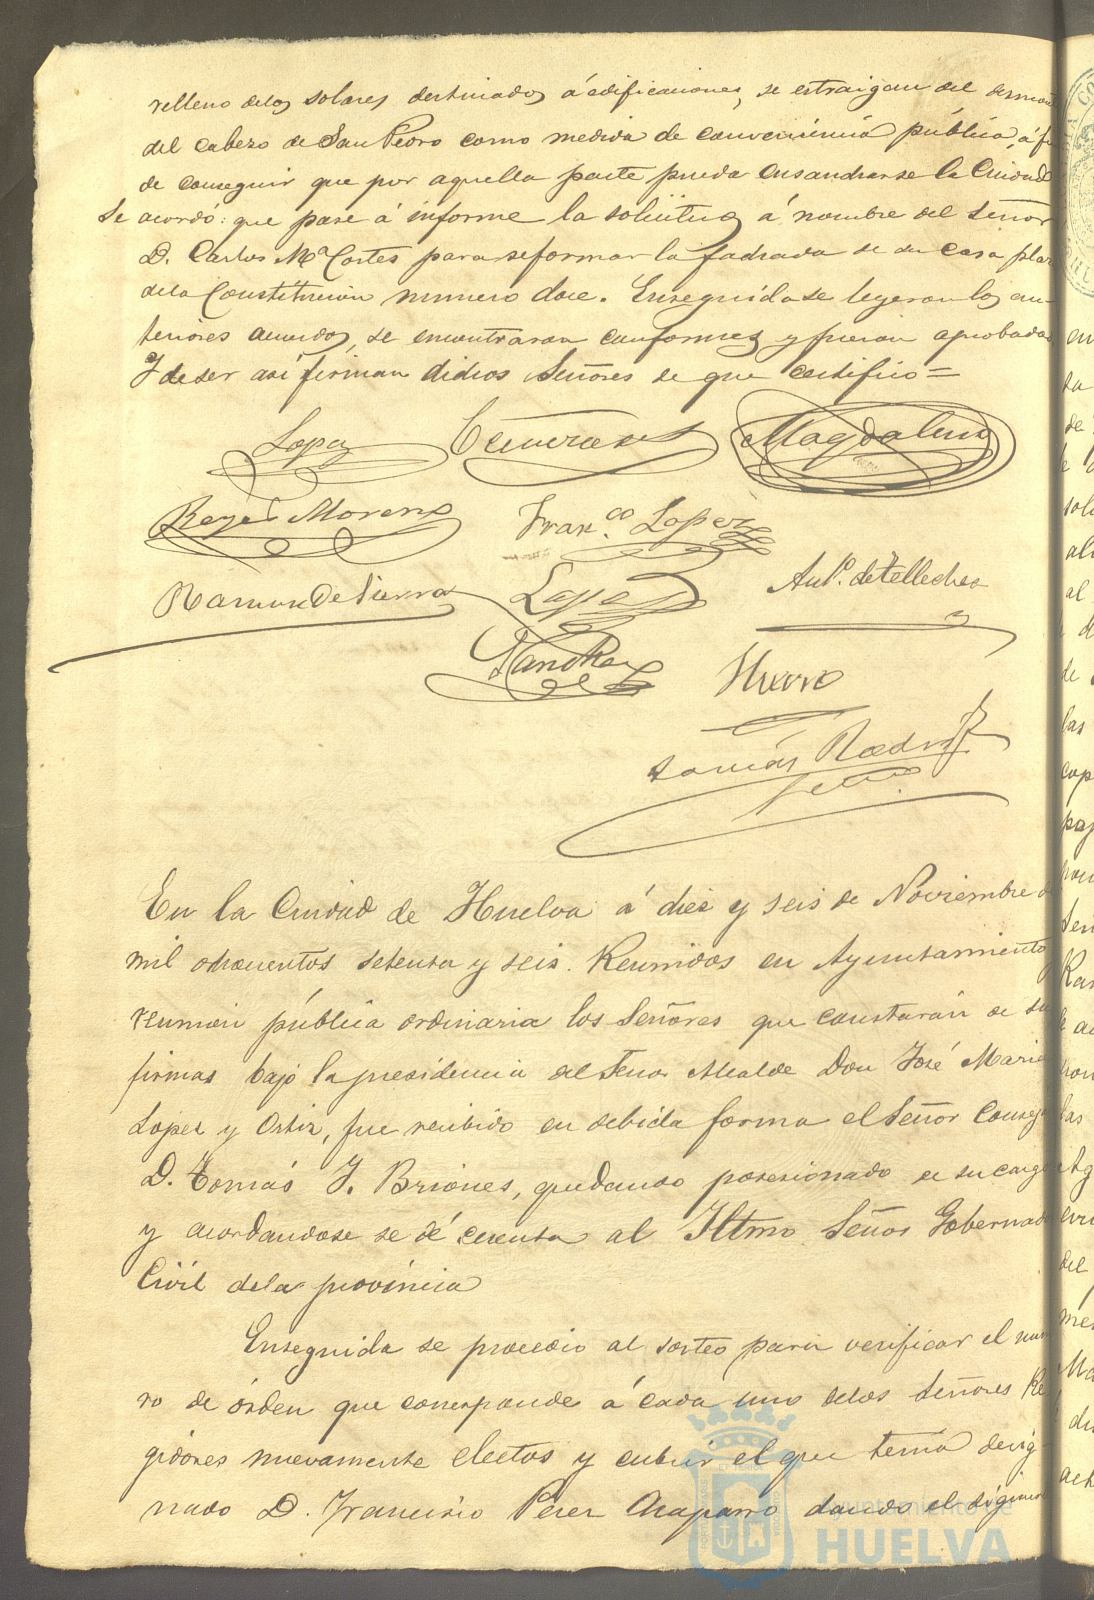 relleno delos solares destinados á edificaciones, se estraigan del desmon
del cabezo de San Pedro como medida de conveniencia pública, á fi
de conseguir que por aquella parte pueda ensancharse la Ciudad
Se acordó: que pase á informe la solicitud á nombre del Señor
D. Carlos Mª Cortes para reformar la fachada de su casa plaz
dela Constitucion numero doce. Enseguida se leyeron los an-
teriores acuerdos, se encontraron conformes y fueron aprobados
Y de ser asi firman dichos Señores de que certifico=
Lopez
Magdalena
Reyes Moreno
Franco. Lopez
Ramon De Sierra
Lopez
Anto. de Tellechea
Sanchez
Tomás Rodrz
En la Ciudad de Huelva á diez y seis de Noviembre d
mil ochocientos setenta y seis. Reunidos en Ayuntamiento
reunion pública ordinaria los Señores que constarán de su
firmas bajo la presidencia del Señor Alcalde Don José Maria
Lopez y Ortiz, fue recibido en debida forma el Señor Conceja
D. Tomás J. Briones, quedando posesionado de su cargo
y acordandose se dé cuenta al Iltmo. Señor Gobernado
Civil dela provincia
Enseguida se procedio al sorteo para verificar el num
ro de órden que corresponde á cada uno delos Señores Re
gidores nuevamente electos y cubrir el que tenia desig-
nado D. Francisco Perez Acaparro dando el siguien
Ayuntamiento de
HUELVA